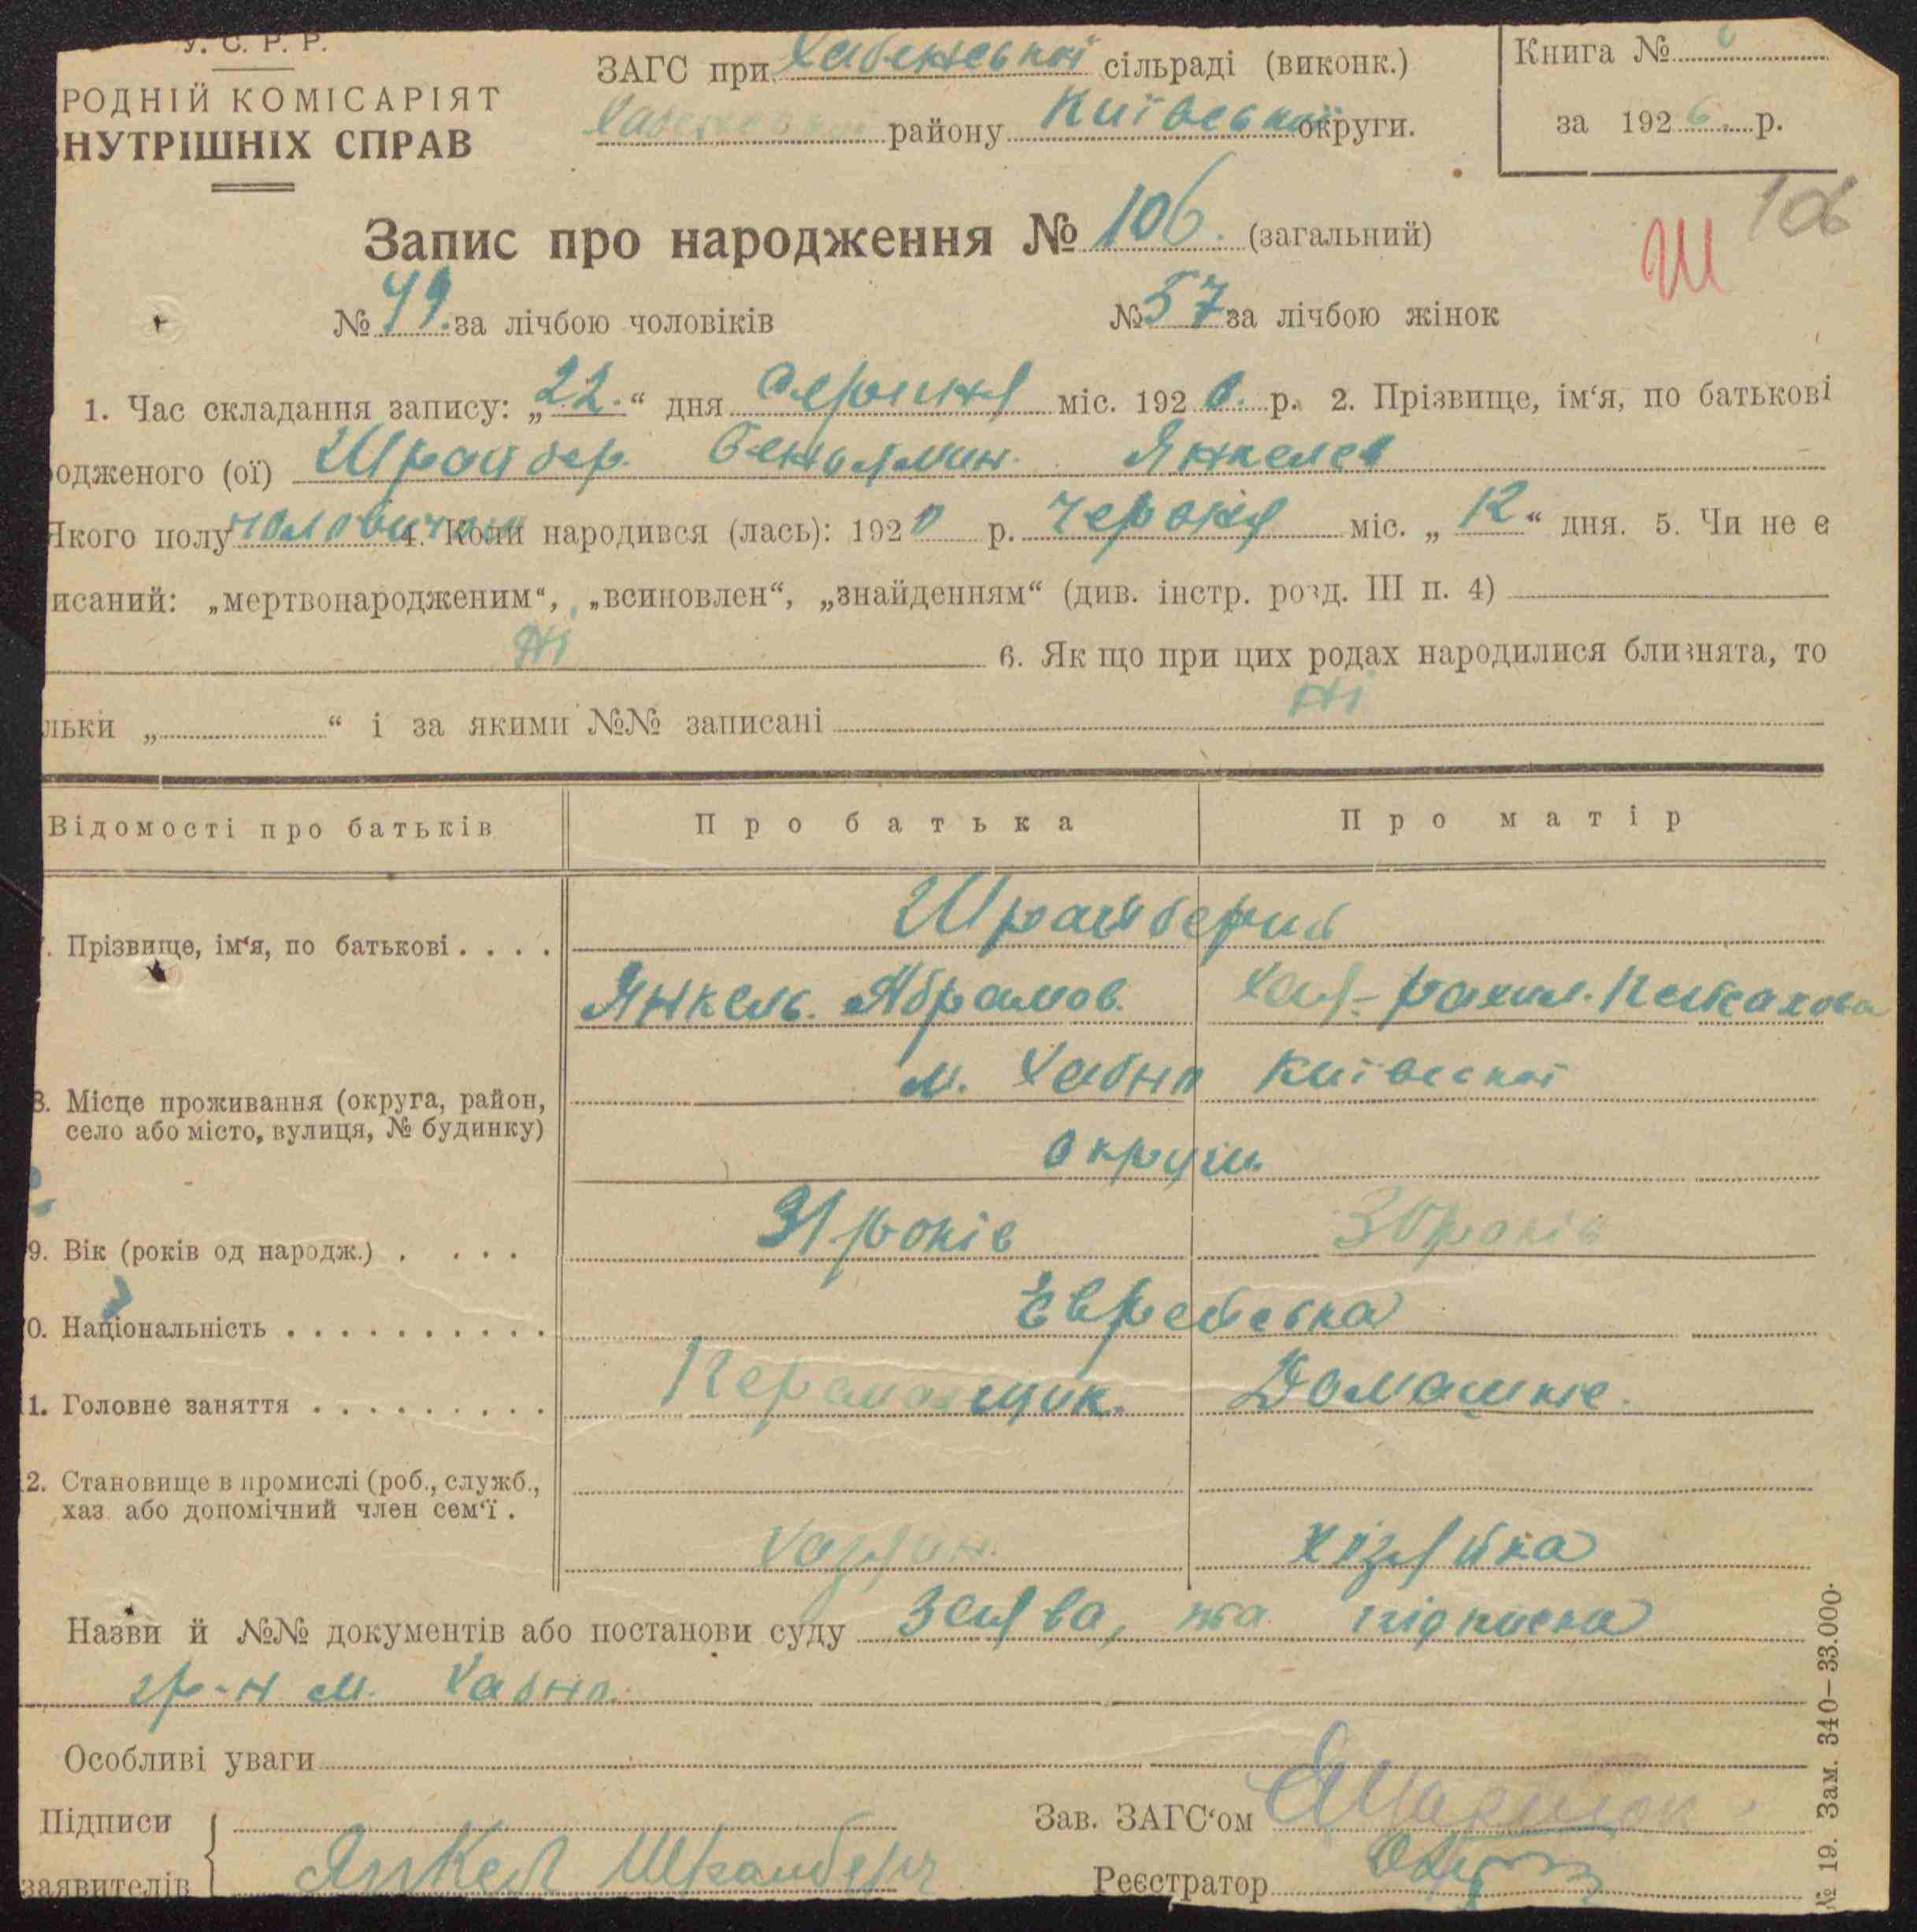 У. С. Р. Р.
РОДНІЙ КОМІСАРІЯТ
НУТРІШНІХ СПРАВ
ЗАГС при Хабенської сільраді (виконк.)
району Київської округи.
Книга №
за 1926 р.
106
Ш
Запис про народження № 106. (загальний)
№ 49. за лічбою чоловіків № 57 за лічбою жінок
1. Час складання запису: „22.“ дня серпня міс. 1926. р. 2. Прізвище, ім‘я, по батькові
одженого (ої) Шрайбер. Беньямин. Янкелев
Якого полу чоловичого 4. Коли народився (лась): 192 р. червня міс. „12“ дня. 5. Чи не є
исаний: „мертвонародженим“, „всиновлен“, „знайденням“ (див. інстр. розд. III п. 4)
Ні
6. Як що при цих родах народилися близнята, то
льки „ “ і за якими №№ записані Ні
Відомості про батьків Про батька Про матір
. Прізвище, ім‘я, по батькові . . . . Шрайбери
Янкель. Абрамов. Хая-рахил. Пейсахова
8. Місце проживання (округа, район, м. Хабно Київської
село або місто, вулиця, № будинку) округи.
9. Вік (років од народж.) . . . . 31 років 30 років
0. Національність . . . . . . . . . . Еврейська
1. Головне заняття . . . . . . . . . Домашнє.
2. Становище в промислі (роб., служб.,
хаз. або допомічний член сем‘ї .
Хазяин. Хізяйка
Назви й №№ документів або постанови суду Заява, та підписка
гр-н м. Хабно.
Особливі уваги
Підписи
заявителів Янкел Шрайбер
Зав. ЗАГС‘ом
Реєстратор
№ 19. Зам. 340—33.000.